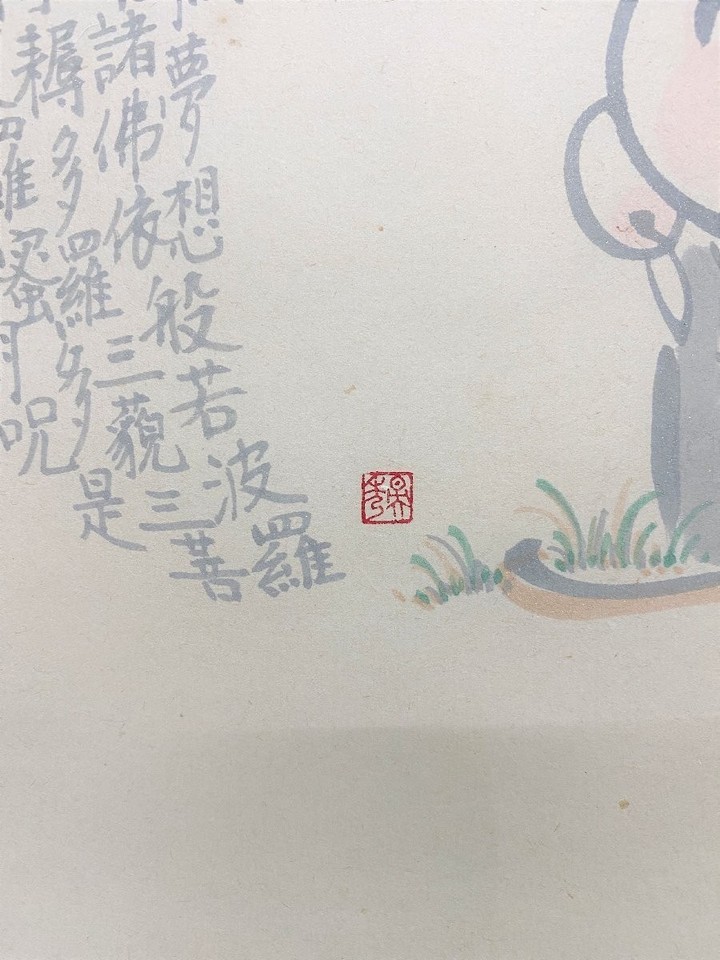 夢想
諸佛依般若波羅
耨多羅三藐三菩
羅蜜多是
呪